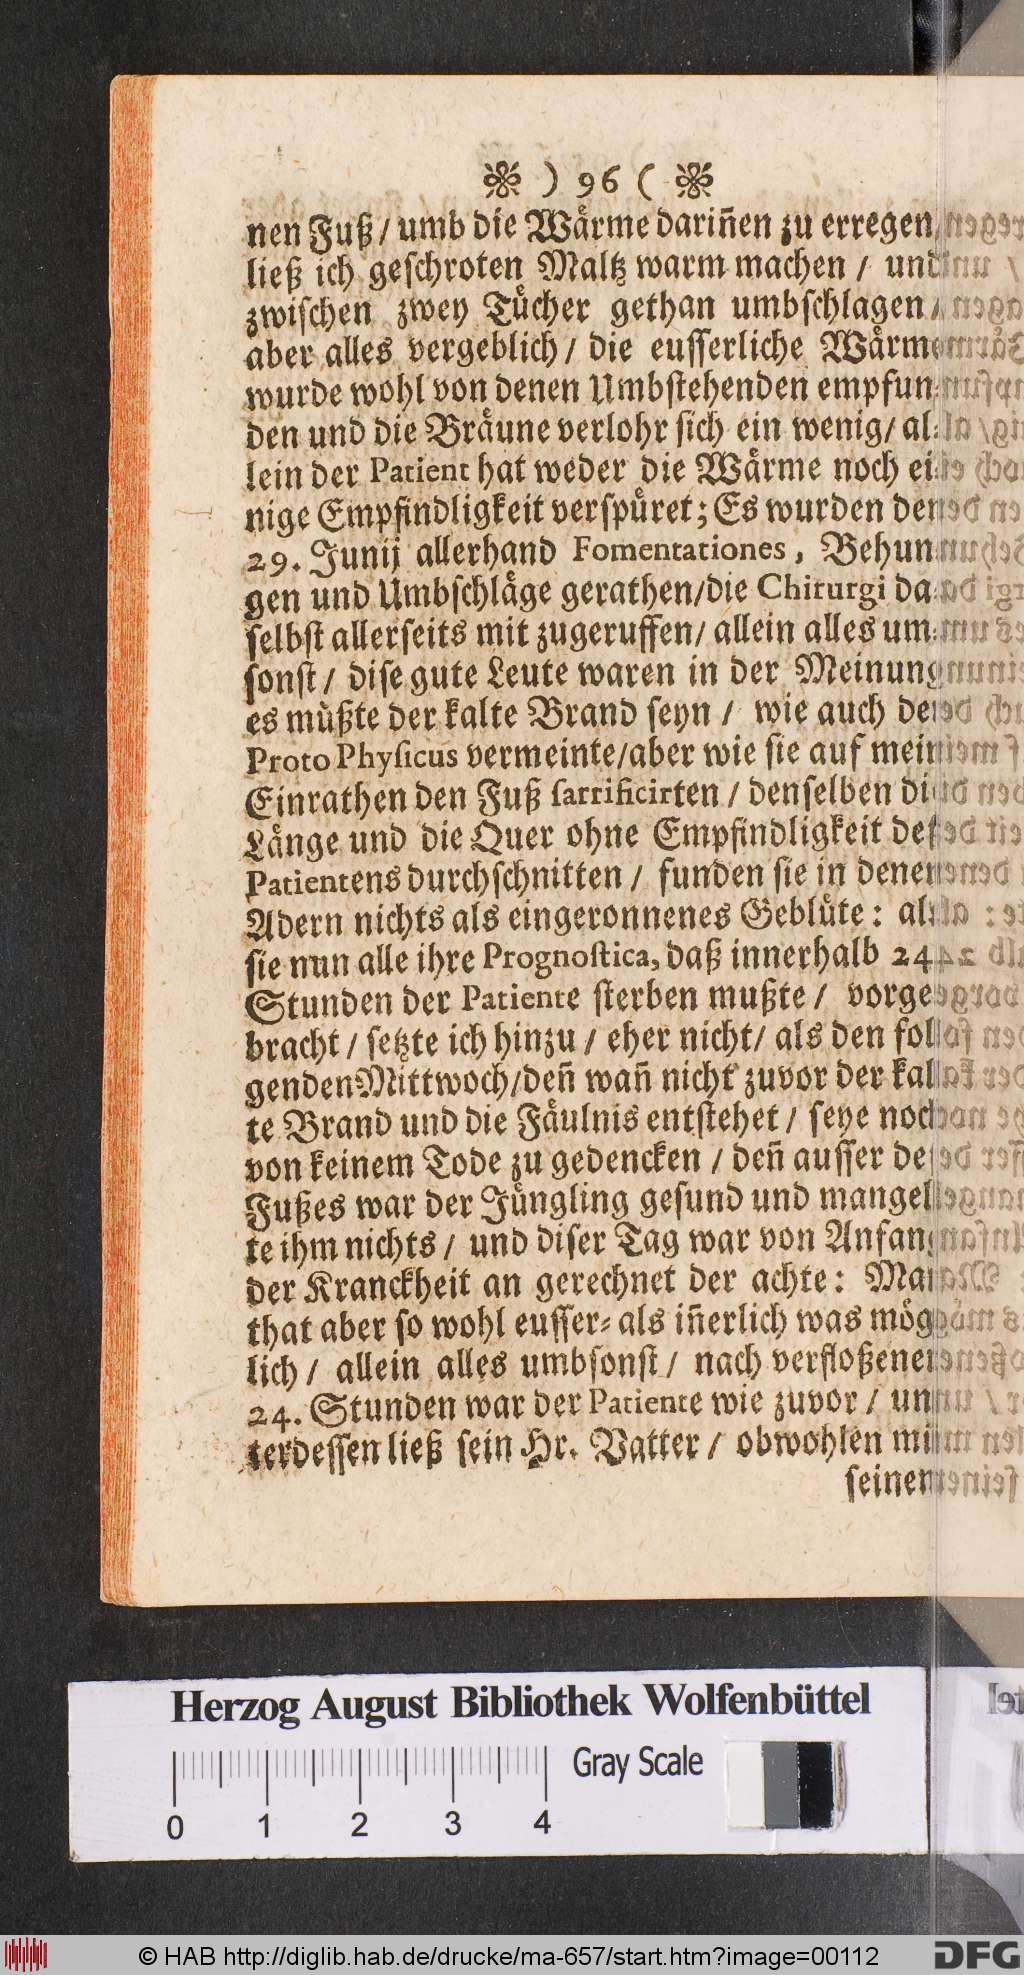 ) 96 (
nen Fuß / umb die Wärme dariñen zu erregen /
ließ ich geschroten Maltz warm machen / und
zwischen zwey Tücher gethan umbschlagen /
aber alles vergeblich / die eusserliche Wärme
wurde wohl von denen Umbstehenden empfun-
den und die Bräune verlohr sich ein wenig / al-
lein der Patient hat weder die Wärme noch ei-
nige Empfindligkeit verspüret; Es wurden den
29. Junij allerhand Fomentationes, Behun-
gen und Umbschläge gerathen / die Chirurgi da-
selbst allerseits mit zugeruffen / allein alles um-
sonst / dise gute Leute waren in der Meinung
es müßte der kalte Brand seyn / wie auch der
Proto Physicus vermeinte / aber wie sie auf mein
Einrathen den Fuß sarrificirten / denselben die
Länge und die Quer ohne Empfindligkeit des
Patientens durchschnitten / funden sie in denen
Adern nichts als eingeronnenes Geblüte: als
sie nun alle ihre Prognostica, daß innerhalb 24
Stunden der Patiente sterben mußte / vorge-
bracht / setzte ich hinzu / eher nicht / als den fol-
genden Mittwoch / deñ wañ nicht zuvor der kal-
te Brand und die Fäulnis entstehet / seye noch
von keinem Tode zu gedencken / deñ ausser des
Fußes war der Jüngling gesund und mangel-
te ihm nichts / und diser Tag war von Anfang
der Kranckheit an gerechnet der achte: Man
that aber so wohl eusser- als iñerlich was mög-
lich / allein alles umbsonst / nach verfloßenen
24. Stunden war der Patiente wie zuvor / un-
terdessen ließ sein Hr. Vatter / obwohlen mit
seinem
Herzog August Bibliothek Wolfenbüttel
Gray Scale
0 1 2 3 4
© HAB http://diglib.hab.de/drucke/ma-657/start.htm?image=00112
DFG